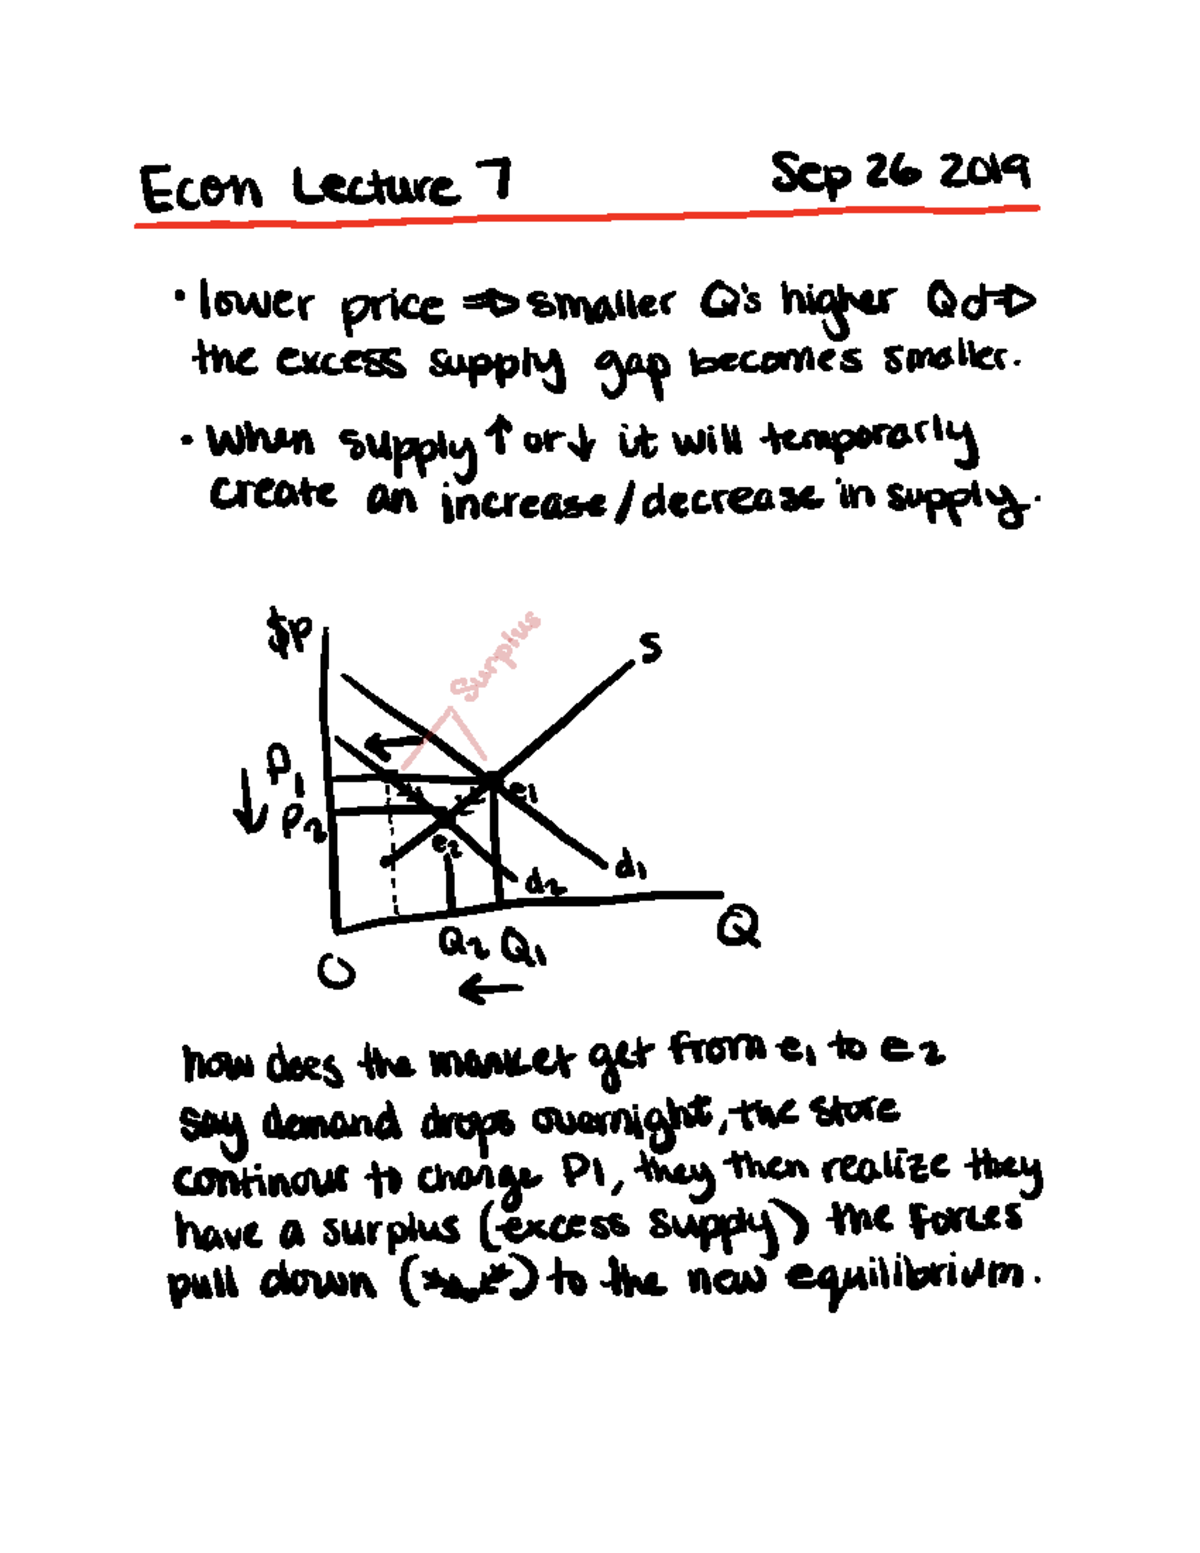 Econ Lecture 7 Sep 26 2019
• lower price ⇒ smaller Q's higher Qd ⇒
the excess supply gap becomes smaller.
• When supply ↑ or ↓ it will temporarly
create an increase/decrease in supply.
$P
Surplus
S
P1
P2
e1
e2
d1
d2
Q2 Q1
Q
O
how does the market get from e1 to e2
say demand drops overnight, the store
continour to charge P1, they then realize they
have a surplus (excess supply) the forces
pull down ( ) to the new equilibrium.